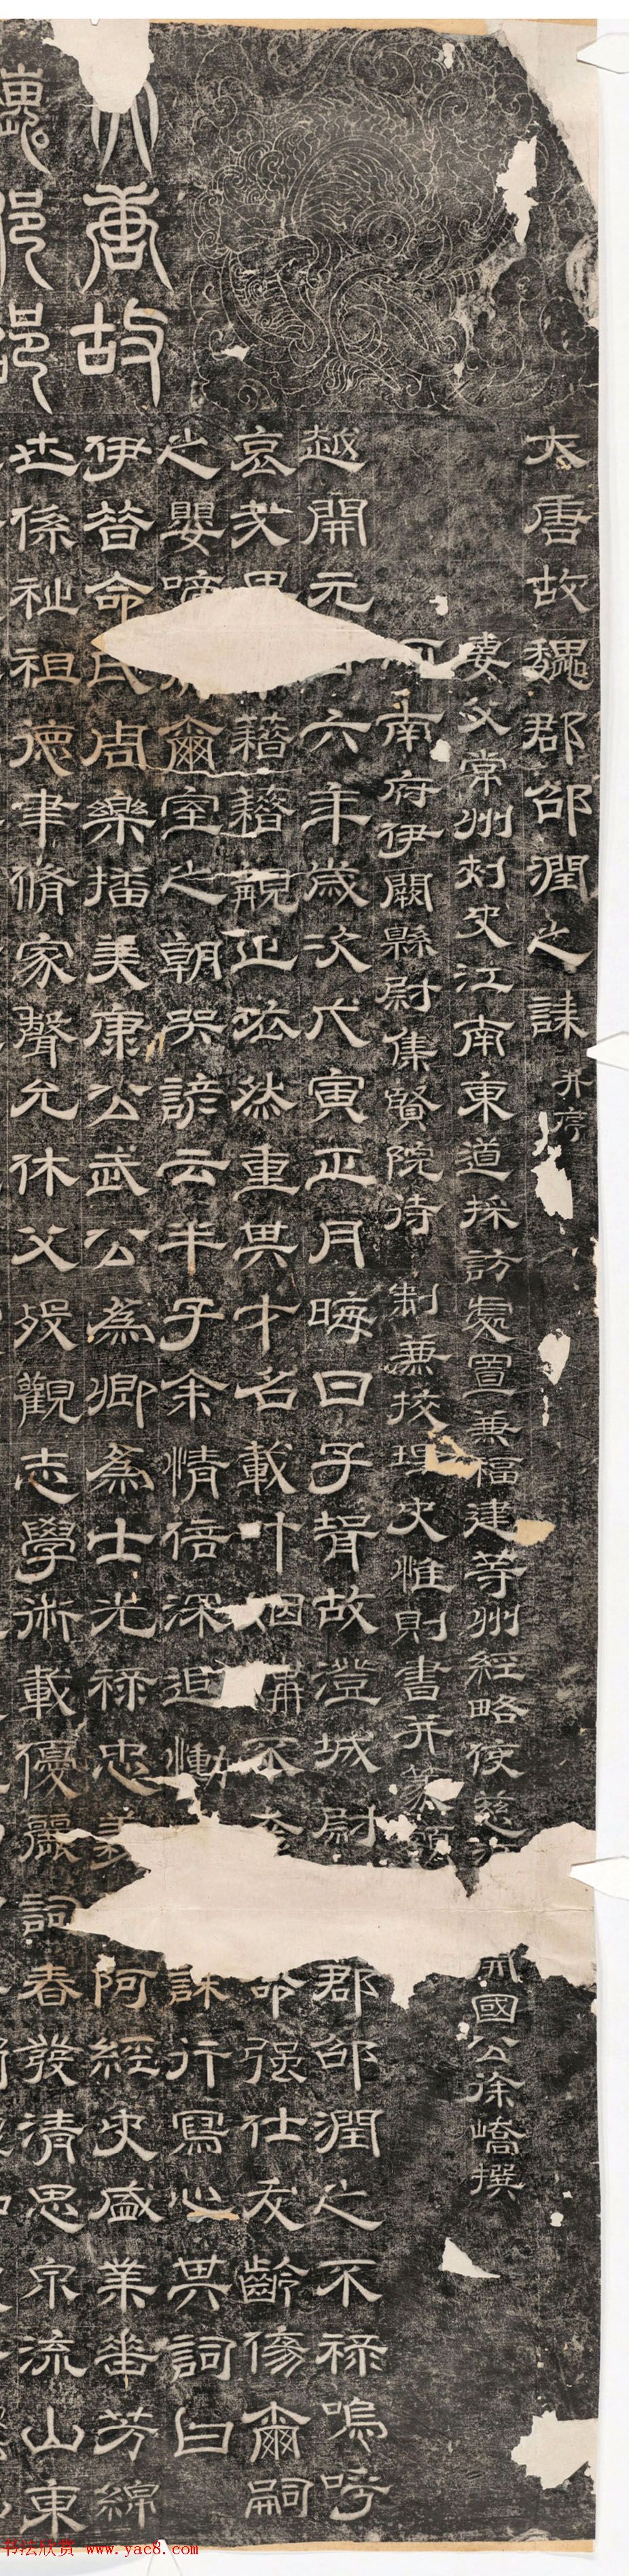 大唐故
魏郡邵
大唐故魏郡邵潤之誄并序
妻父常州刾史江南東道採訪處置兼福建等州經略使慈 國公徐嶠撰
河南府伊闕縣尉集賢院待制兼挍理史惟則書并篆額
越開元 六年歲次戊寅正月晦日子壻故澄城尉 郡邵潤之不祿嗚呼
哀㢤 籍籍觀正泫然重其才名載 姻 不 命强仕夭齡傷爾嗣
之嬰啼 爾室之朝哭諺云半子余情倍深追慟 誄行寫心其詞曰
伊昔命氏周樂播美康公武公為卿為士光祿忠義 阿經史盛業垂芳綿
世係祉祖德聿脩家聲允休父歿觀志學術載優麗詞春發清思泉流山東
书法欣赏 www.yac8.com